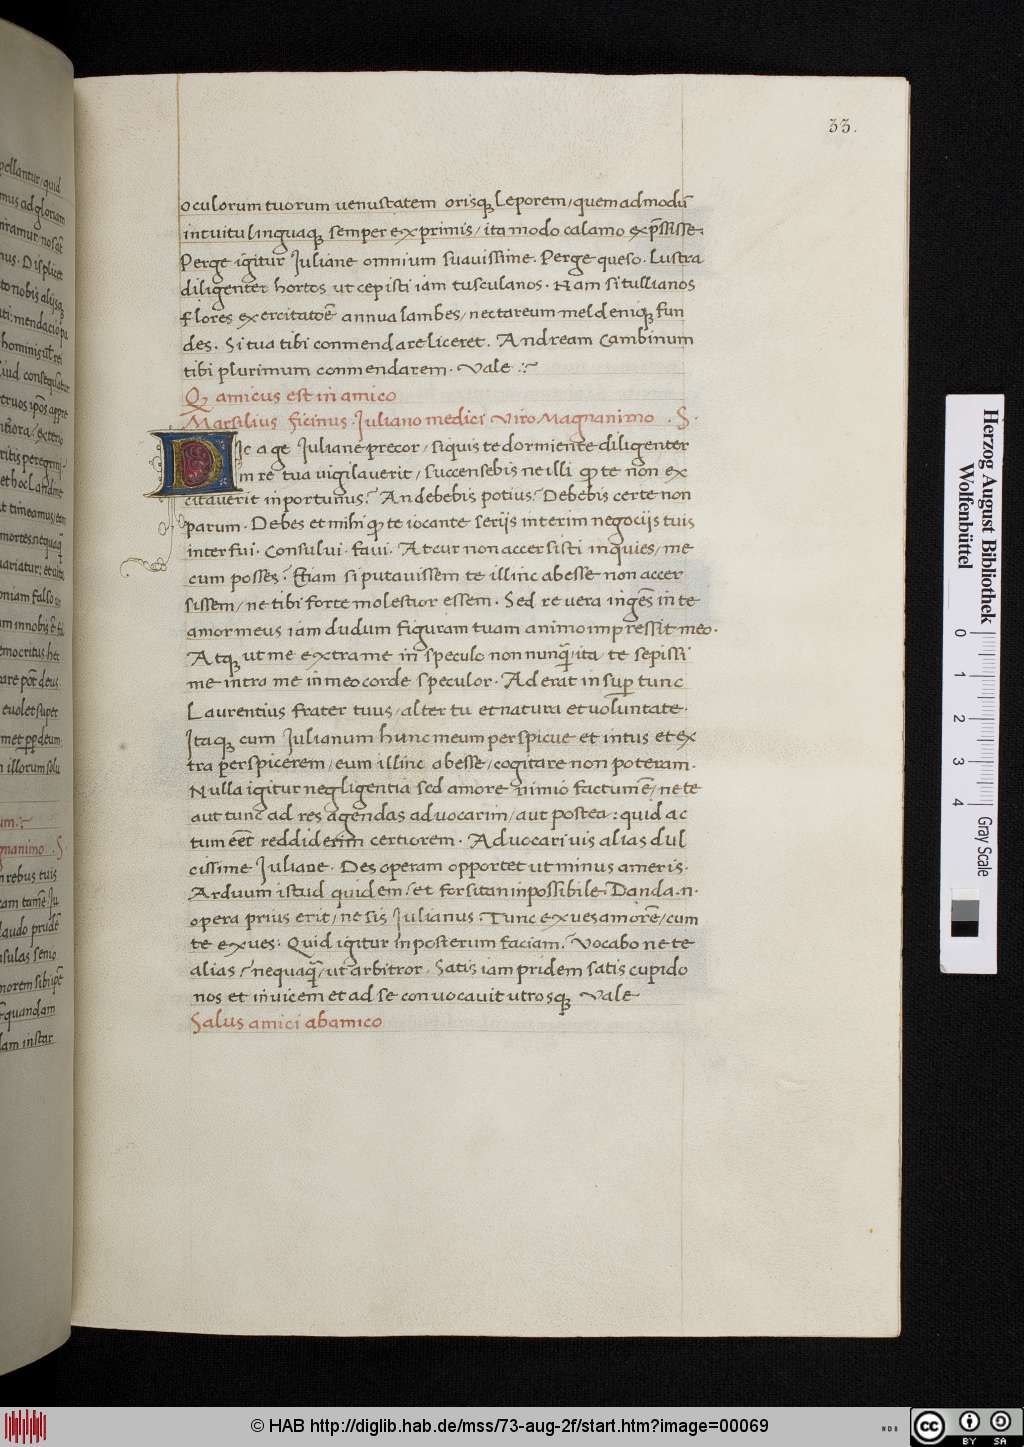 33.
oculorum tuorum uenustatem orisqꝫ leporem/ quemadmodū
intuitu linguaqꝫ semper exprimis/ ita modo calamo exp̄ssisse.
Perge igitur Iuliane omnium suauissime. Perge queso. Lustra
diligenter hortos ut cepisti iam tusculanos. Nam si tullianos
flores exercitatōe annua lambes/ nectareum mel deniqꝫ fun
des. Si tua tibi conmendare liceret. Andream Cambinum
tibi plurimum conmendarem. Vale
Qꝫ amicus est in amico
Marsilius ficinus. Iuliano medici Viro Magnanimo . S.
Dic age Iuliane precor/ siquis te dormiente diligenter
in re tua uigilauerit/ succensebis ne illi ꝙ te non ex
citauerit inportunus? An debebis potius? Debebis certe non
parum. Debes et mihi ꝙ te iocante serijs interim negocijs tuis
interfui. Consului. faui. At cur non accersisti inquies/ me
cum posses? Etiam si putauissem te illinc abesse non accer
sissem/ ne tibi forte molestior essem. Sed re uera ingēs in te
amor meus iam dudum figuram tuam animo impressit meo.
Atqꝫ ut me extra me in speculo non nunq̄/ ita te sepissi
me intra me in meo corde speculor. Aderat insuꝑ tunc
Laurentius frater tuus/ alter tu et natura et uoluntate.
Itaqꝫ cum Iulianum hunc meum perspicue et intus et ex
tra perspicerem/ eum illinc abesse/ cogitare non poteram.
Nulla igitur negligentia sed amore nimio factum ē/ ne te
aut tunc ad res agendas aduocarim/ aut postea: quid ac
tum eēt reddiderim certiorem. Aduocari uis alias dul
cissime Iuliane. Des operam opportet ut minus ameris.
Arduum istud quidem? et forsitan inpossibile. Danda .n.
opera prius erit/ ne sis Iulianus. Tunc exues amorē/ cum
te exues. Quid igitur in posterum faciam? Vocabo ne te
alias? nequaq̄/ ut arbitror. Satis iam pridem satis cupido
nos et inuicem et ad se conuocauit utrosqꝫ Vale
Salus amici ab amico
Herzog August Bibliothek
Wolfenbüttel
0 1 2 3 4 Gray Scale
© HAB http://diglib.hab.de/mss/73-aug-2f/start.htm?image=00069
cc BY SA